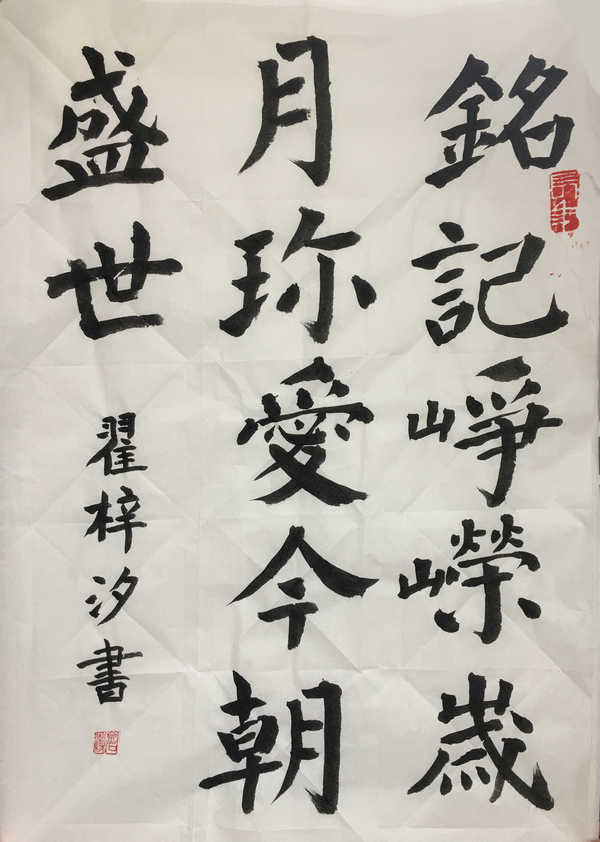 銘記崢嶸歲
月珎愛今朝
盛世
翟梓汐書